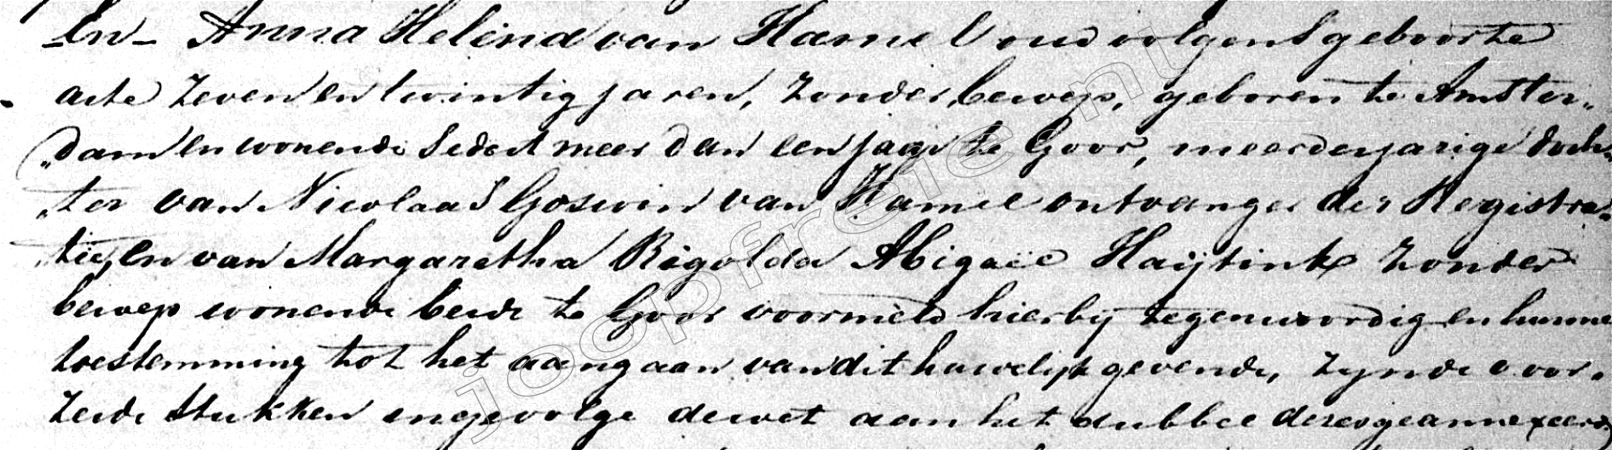 En Anna Helena van Hamel oud volgens geboorte
acte zeven en twintig jaren, zonder bewep, geboren te Amster„
„dam en wonende sedert meer dan een jaar te Goor, meerderjarige doch„
„ter van Nicolaas Goswin van Hamel ontvanger der Registra„
„tie, en van Margaretha Rigolda Abigaël Haijtink zonder
bewep wonende beide te Goor voormeld hierbij tegenwoordig en hunne
toestemming tot het aangaan van dit huwelijk gevende, zynde voor„
zeide stukken ingevolge de wet aan het dubbel dezer geannexeerd
joopfreie.nl